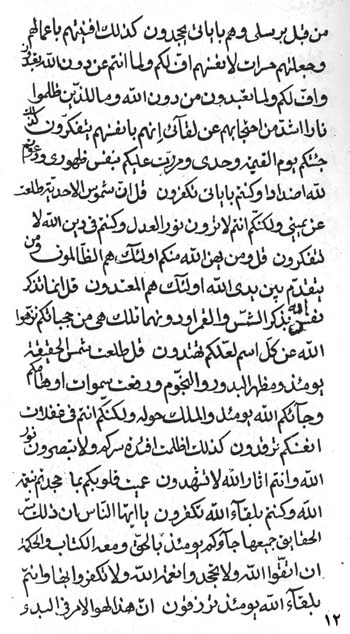 من قبل برسلی وهم بایاتی یجحدون کذلک افنیتهم باعمالهم
وجعلتهم حسرات لانفسهم اف لکم ولما انتم عن دون الله تعبدون
واف لکم ولما تعبدون من دون الله وما للذین ظلموا
نارا اشد من احتجابهم عن لقائی انهم بانفسهم یتفکرون کذلک
جئتکم یوم القیمة وحدی ومررت علیکم بنفس ظهوری
لله اضدادا وکنتم بایاتی تکفرون قل ان شموس الاحدیة طلعت
عن یمینی ولکنکم انتم لا ترون نور العدل وکنتم فی دین الله لا
تتفکرون قل ومن یفر الله منکم اولئک هم الظالمون ومن
یتقدم بین یدی الله اولئک هم المعتدون قل انما تذکر
نفسه بذکر الشمس والقمر او دونهما تلک هی من حجباتکم نزهوا
الله عن کل اسم لعلکم تهتدون قل طلعت شمس الحقیقة
یومئذ ومظهر البدور والنجوم ورفعت سموات اوهامکم
وجائکم الله یومئذ والملک حوله ولکنکم انتم فی غفلات
انفسکم ترقدون کذلک اظلمت افئدة سرکم ولا تبصرون نور
الله وانتم اثار الله لا تشهدون عمیت قلوبکم بما جحدتم نعمة
الله وکنتم بلقاء الله تکفرون یا ایها الناس ان تلک
الحقایق جمیعها جاؤکم یومئذ بالحق ومعه الکتاب والحکمة
ان اتقوا الله ولا تجحدوا نعم الله ولا تکفروا بها وانتم
بلقاء الله یومئذ ترزقون ان هذا لهو الامر فی البدء
۱۲